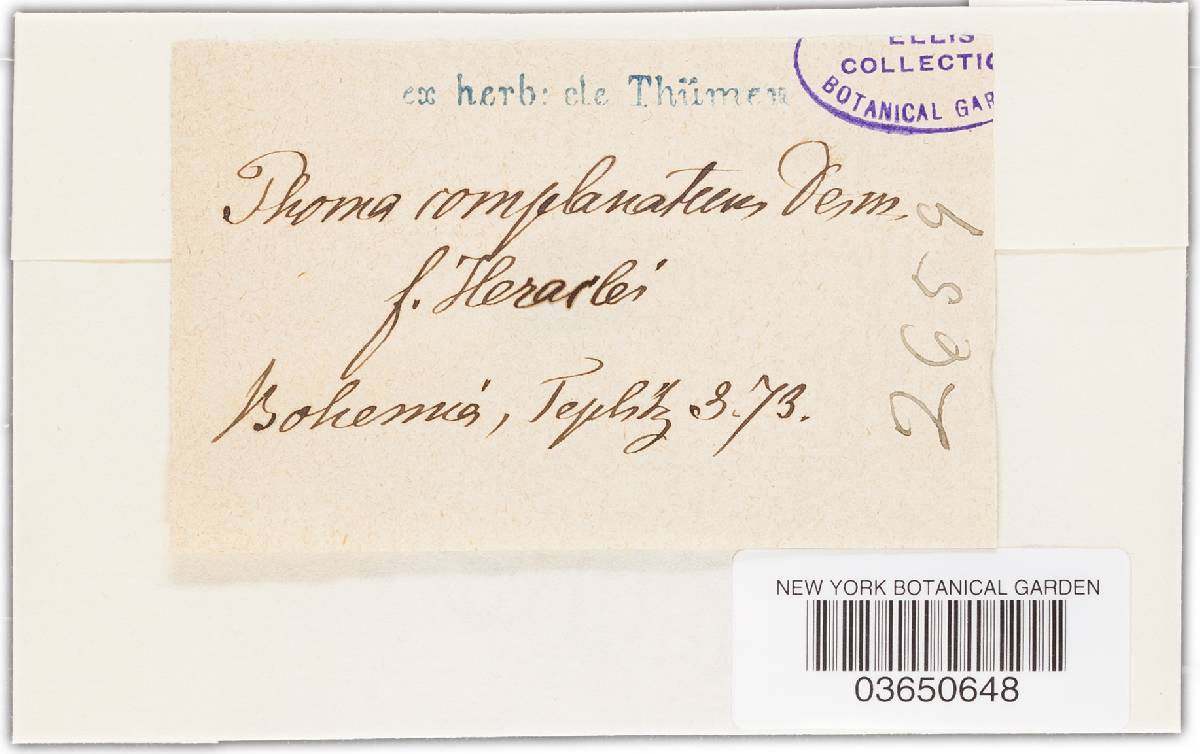 ELLIS
COLLECTIO
BOTANICAL GAR
ex herb: de Thümen
Phoma complanatum Desm.
f. Heraclei
Bohemia, Teplitz 8.73.
2659
NEW YORK BOTANICAL GARDEN
03650648